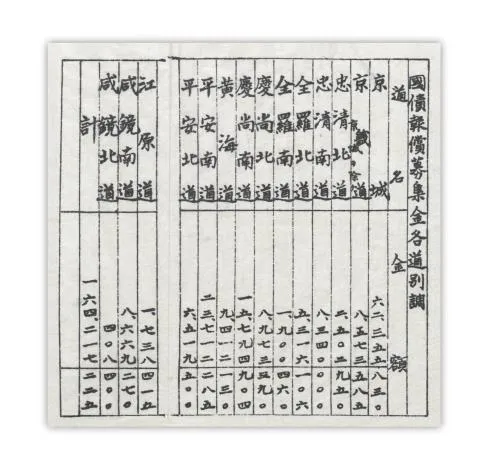 國債報償募集金各道別調
道名 金額
京城 六二、三五五八三〇
京畿道 京城ヲ除ク 八、五七三五八五
忠清北道 二、五〇二九五〇
忠清南道 八、三四〇〇〇〇
全羅北道 五、三一六一〇六
全羅南道 一、九〇〇四六〇
慶尚北道 八、九七三三九〇
慶尚南道 一五、七九四九〇四
黃海道 九、四一二一三〇
平安南道 二三、七一二二八五
平安北道 六、五一九五〇〇
江原道 一、七三八四一五
咸鏡南道 八、六六九二七〇
咸鏡北道 四〇八四〇〇
計 一六四、二一七二二五